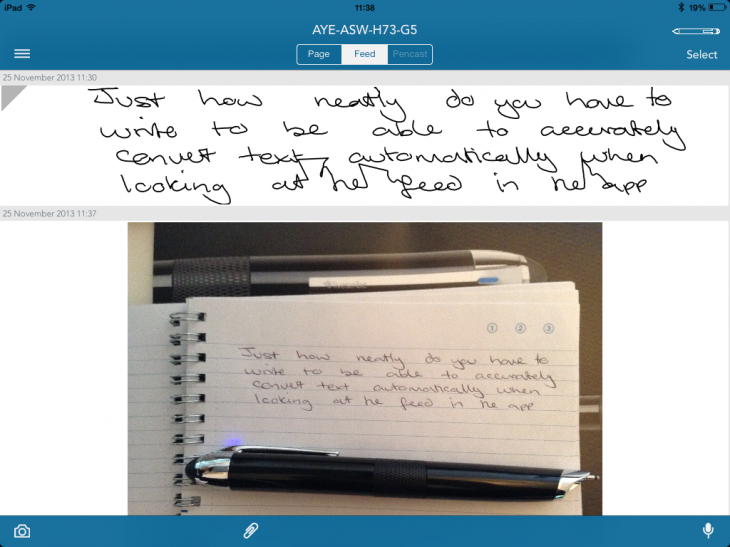 iPad 11:38 19%
AYE-ASW-H73-G5
Page Feed Pencast
Select
25 November 2013 11:30
Just how neatly do you have to
write to be able to accurately
convert text automatically when
looking at he feed in he app
25 November 2013 11:37
1 2 3
Just how neatly do you have to
write to be able to accurately
convert text automatically when
looking at he feed in he app